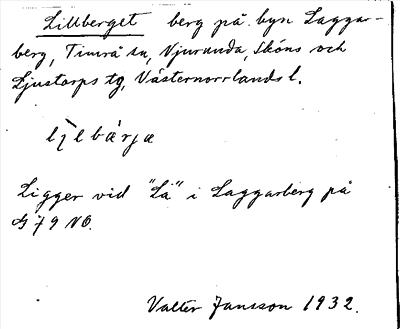 Lillberget berg på byn Laggar-
berg, Timrå sn, Njurunda, Sköns och
Ljustorps tg, Västernorrlands l.
lìlbærjæ
Ligger vid "Lå" i Laggarberg på
G 79 NO.
Valter Jansson 1932.